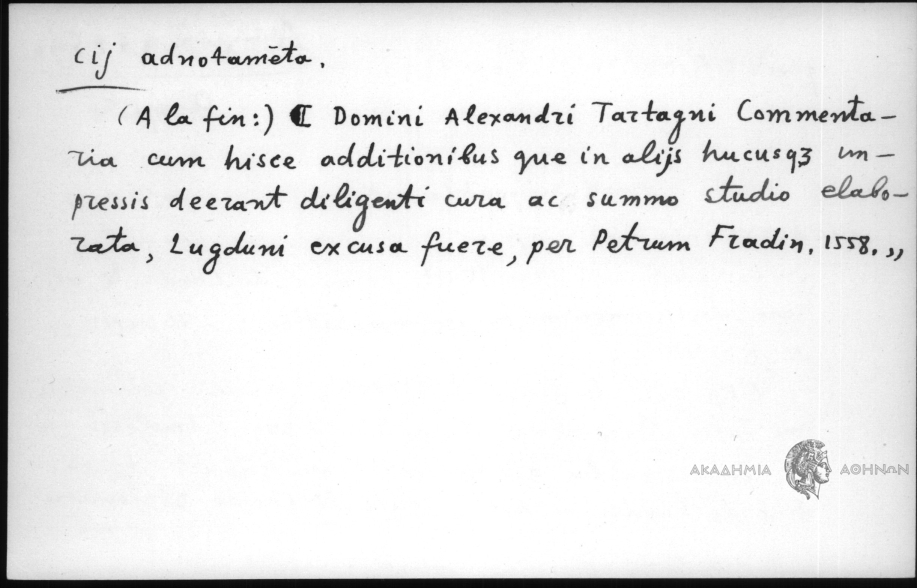 cij adnotamēta.
(A la fin:) ⸿ Domini Alexandri Tartagni Commenta-
ria cum hisce additionibus que in alijs hucusqꝫ im-
pressis deerant diligenti cura ac summo studio elabo-
rata, Lugduni excusa fuere, per Petrum Fradin, 1558.,,
ΑΚΑΔΗΜΙΑ ΑΘΗΝΩΝ